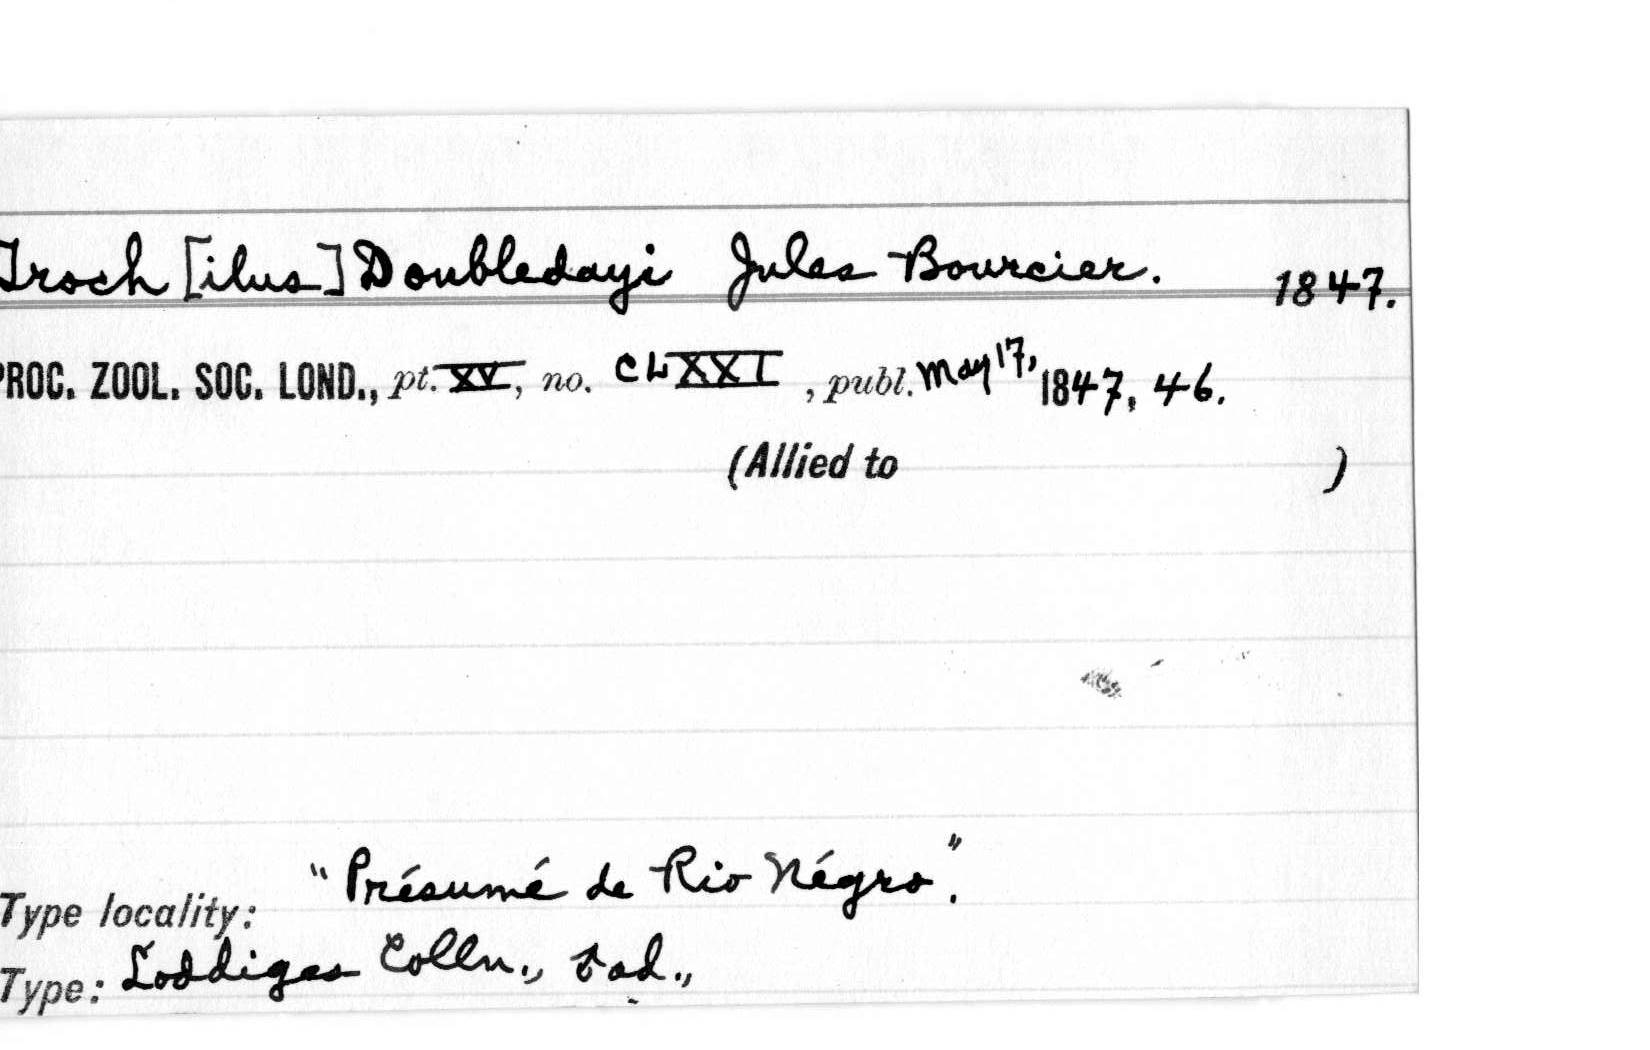 Troch [ilus] Doubledayi Jules Bourcier. 1847.
PROC. ZOOL. SOC. LOND., pt. XV, no. CLXXI, publ. May 17, 1847, 46.
(Allied to )
Type locality: "Présumé de Rio Négro".
Type: Loddiges Colln., ♂ ad.,